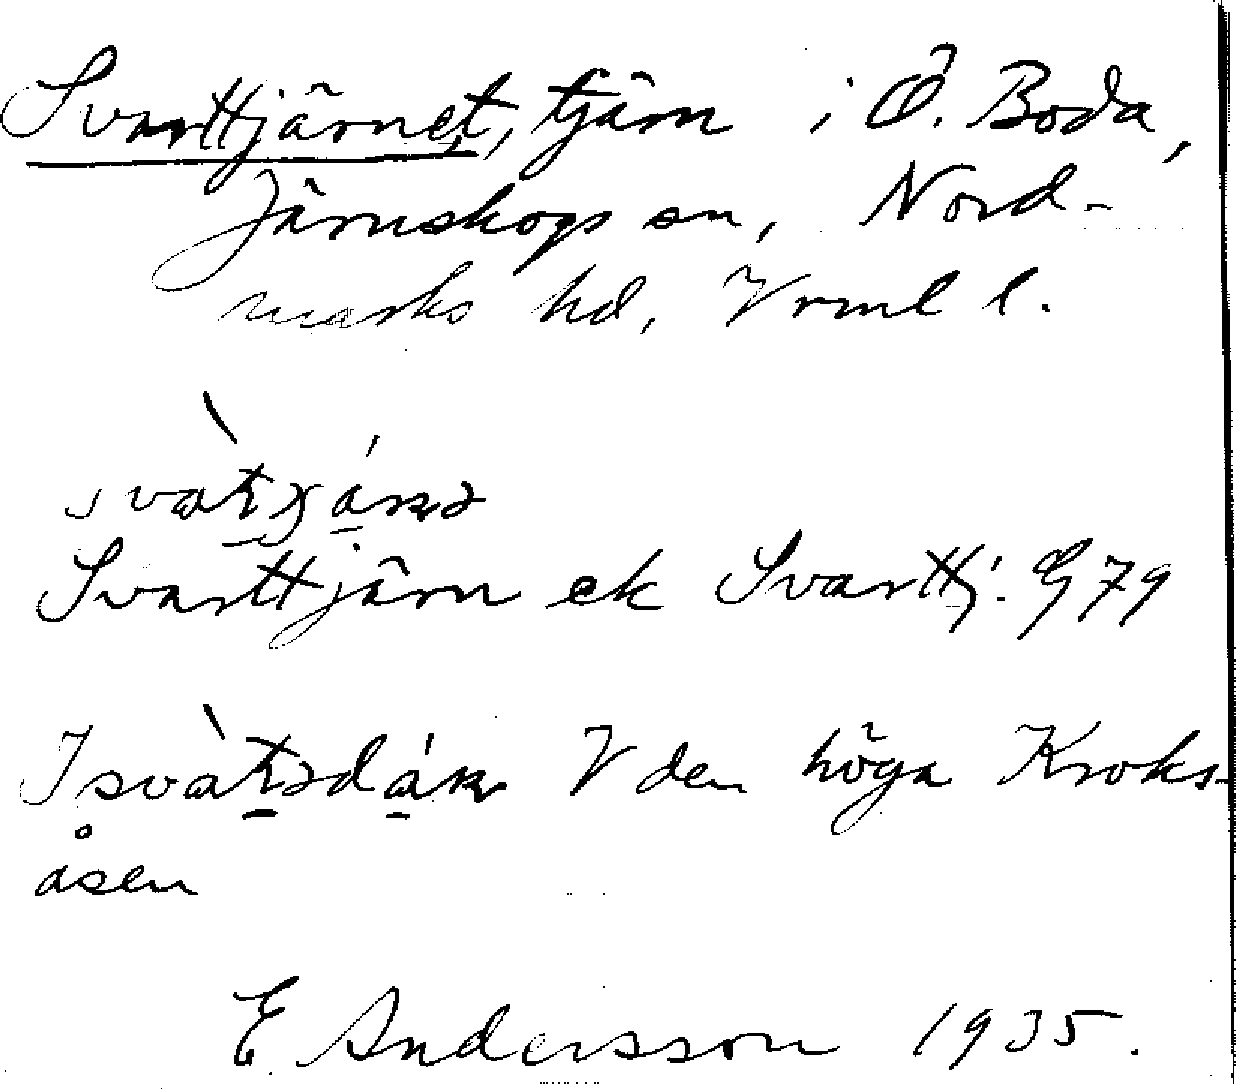 Svarttjärnet, tjärn i Ö. Boda,
Järnskogs sn, Nord-
marks hd, Vrml l.
Svarttjärn ek Svarttj. G 79
V den höga Kroks-
åsen
E Andersson 1935.